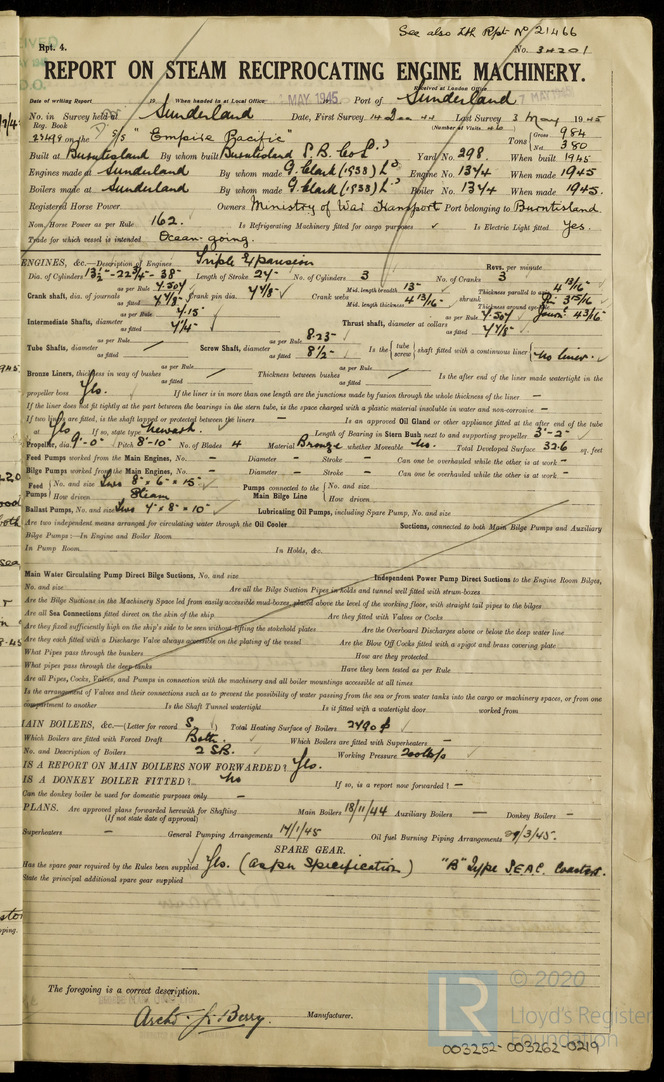 See also Lth Rpt No 21466
Rpt. 4.
No. 34201
REPORT ON STEAM RECIPROCATING ENGINE MACHINERY.
Received at London Office
Date of writing Report 19 When handed in at Local Office MAY 1945 Port of Sunderland 7 MAY 1945
No. in Survey held at Sunderland Date, First Survey 14 Dec 44 Last Survey 3 May 1945
Reg. Book (Number of Visits
on the S/S "Empire Pacific" Tons Gross 984 Net 380
Built at Burntisland By whom built Burntisland S.B. Co Ld Yard No. 298. When built 1945
Engines made at Sunderland By whom made G. Clark (1938) Ld Engine No. 1374 When made 1945
Boilers made at Sunderland By whom made G. Clark (1938) Ld Boiler No. 1374 When made 1945.
Registered Horse Power Owners Ministry of War Transport Port belonging to Burntisland
Nom. Horse Power as per Rule 162. Is Refrigerating Machinery fitted for cargo purposes Is Electric Light fitted Yes.
Trade for which vessel is intended Ocean-going.
ENGINES, &c.—Description of Engines Triple Expansion Revs. per minute
Dia. of Cylinders 13½-22¾-38 Length of Stroke 24 No. of Cylinders 3 No. of Cranks 3
Crank shaft, dia. of journals as per Rule 4.504 as fitted 4 7/8 Crank pin dia. 4 7/8 Crank webs Mid. length breadth 13 Mid. length thickness 4 13/16 shrunk Thickness parallel to axis 4 13/16 Thickness around eye-hole Pin 3 15/16 Journl 4 3/16
Intermediate Shafts, diameter as per Rule 4.15 as fitted 4¼ Thrust shaft, diameter at collars as per Rule 4.504 as fitted 4 7/8
Tube Shafts, diameter as per Rule as fitted Screw Shaft, diameter as per Rule 8.23 as fitted 8½ Is the { tube screw } shaft fitted with a continuous liner { No liner.
Bronze Liners, thickness in way of bushes as per Rule as fitted Thickness between bushes as per Rule as fitted Is the after end of the liner made watertight in the
propeller boss Yes. If the liner is in more than one length are the junctions made by fusion through the whole thickness of the liner —
If the liner does not fit tightly at the part between the bearings in the stern tube, is the space charged with a plastic material insoluble in water and non-corrosive —
If two liners are fitted, is the shaft lapped or protected between the liners — Is an approved Oil Gland or other appliance fitted at the after end of the tube
Yes If so, state type Newark. Length of Bearing in Stern Bush next to and supporting propeller 3'-2"
Propeller, dia. 9'-0" Pitch 8'-10" No. of Blades 4 Material Bronze whether Moveable No. Total Developed Surface 32.6 sq. feet
Feed Pumps worked from the Main Engines, No. — Diameter — Stroke — Can one be overhauled while the other is at work —
Bilge Pumps worked from the Main Engines, No. — Diameter — Stroke — Can one be overhauled while the other is at work —
Feed Pumps { No. and size Two 8" x 6" x 15" How driven Steam Pumps connected to the Main Bilge Line { No. and size How driven
Ballast Pumps, No. and size Two 7" x 8" x 10" Lubricating Oil Pumps, including Spare Pump, No. and size
Are two independent means arranged for circulating water through the Oil Cooler Suctions, connected to both Main Bilge Pumps and Auxiliary
Bilge Pumps:—In Engine and Boiler Room
In Pump Room In Holds, &c.
Main Water Circulating Pump Direct Bilge Suctions, No. and size Independent Power Pump Direct Suctions to the Engine Room Bilges,
No. and size Are all the Bilge Suction Pipes in holds and tunnel well fitted with strum-boxes
Are the Bilge Suctions in the Machinery Space led from easily accessible mud-boxes, placed above the level of the working floor, with straight tail pipes to the bilges
Are all Sea Connections fitted direct on the skin of the ship Are they fitted with Valves or Cocks
Are they fixed sufficiently high on the ship's side to be seen without lifting the stokehold plates Are the Overboard Discharges above or below the deep water line
Are they each fitted with a Discharge Valve always accessible on the plating of the vessel Are the Blow Off Cocks fitted with a spigot and brass covering plate
What Pipes pass through the bunkers How are they protected
What pipes pass through the deep tanks Have they been tested as per Rule
Are all Pipes, Cocks, Valves, and Pumps in connection with the machinery and all boiler mountings accessible at all times
Is the arrangement of Valves and their connections such as to prevent the possibility of water passing from the sea or from water tanks into the cargo or machinery spaces, or from one
compartment to another Is the Shaft Tunnel watertight Is it fitted with a watertight door worked from
MAIN BOILERS, &c.—(Letter for record S) Total Heating Surface of Boilers 2490
Which Boilers are fitted with Forced Draft Both Which Boilers are fitted with Superheaters —
No. and Description of Boilers 2 S.B. Working Pressure 200
IS A REPORT ON MAIN BOILERS NOW FORWARDED? Yes.
IS A DONKEY BOILER FITTED? No If so, is a report now forwarded? —
Can the donkey boiler be used for domestic purposes only —
PLANS. Are approved plans forwarded herewith for Shafting Main Boilers 18/11/44 Auxiliary Boilers — Donkey Boilers —
(If not state date of approval)
Superheaters — General Pumping Arrangements 17/1/45 Oil fuel Burning Piping Arrangements 29/3/45.
SPARE GEAR.
Has the spare gear required by the Rules been supplied Yes. (as per Specification) "B" Type Coasters.
State the principal additional spare gear supplied
The foregoing is a correct description.
Archd Berry. Manufacturer.
© 2020
LR
Lloyd's Register
Foundation
003252-003262-0219